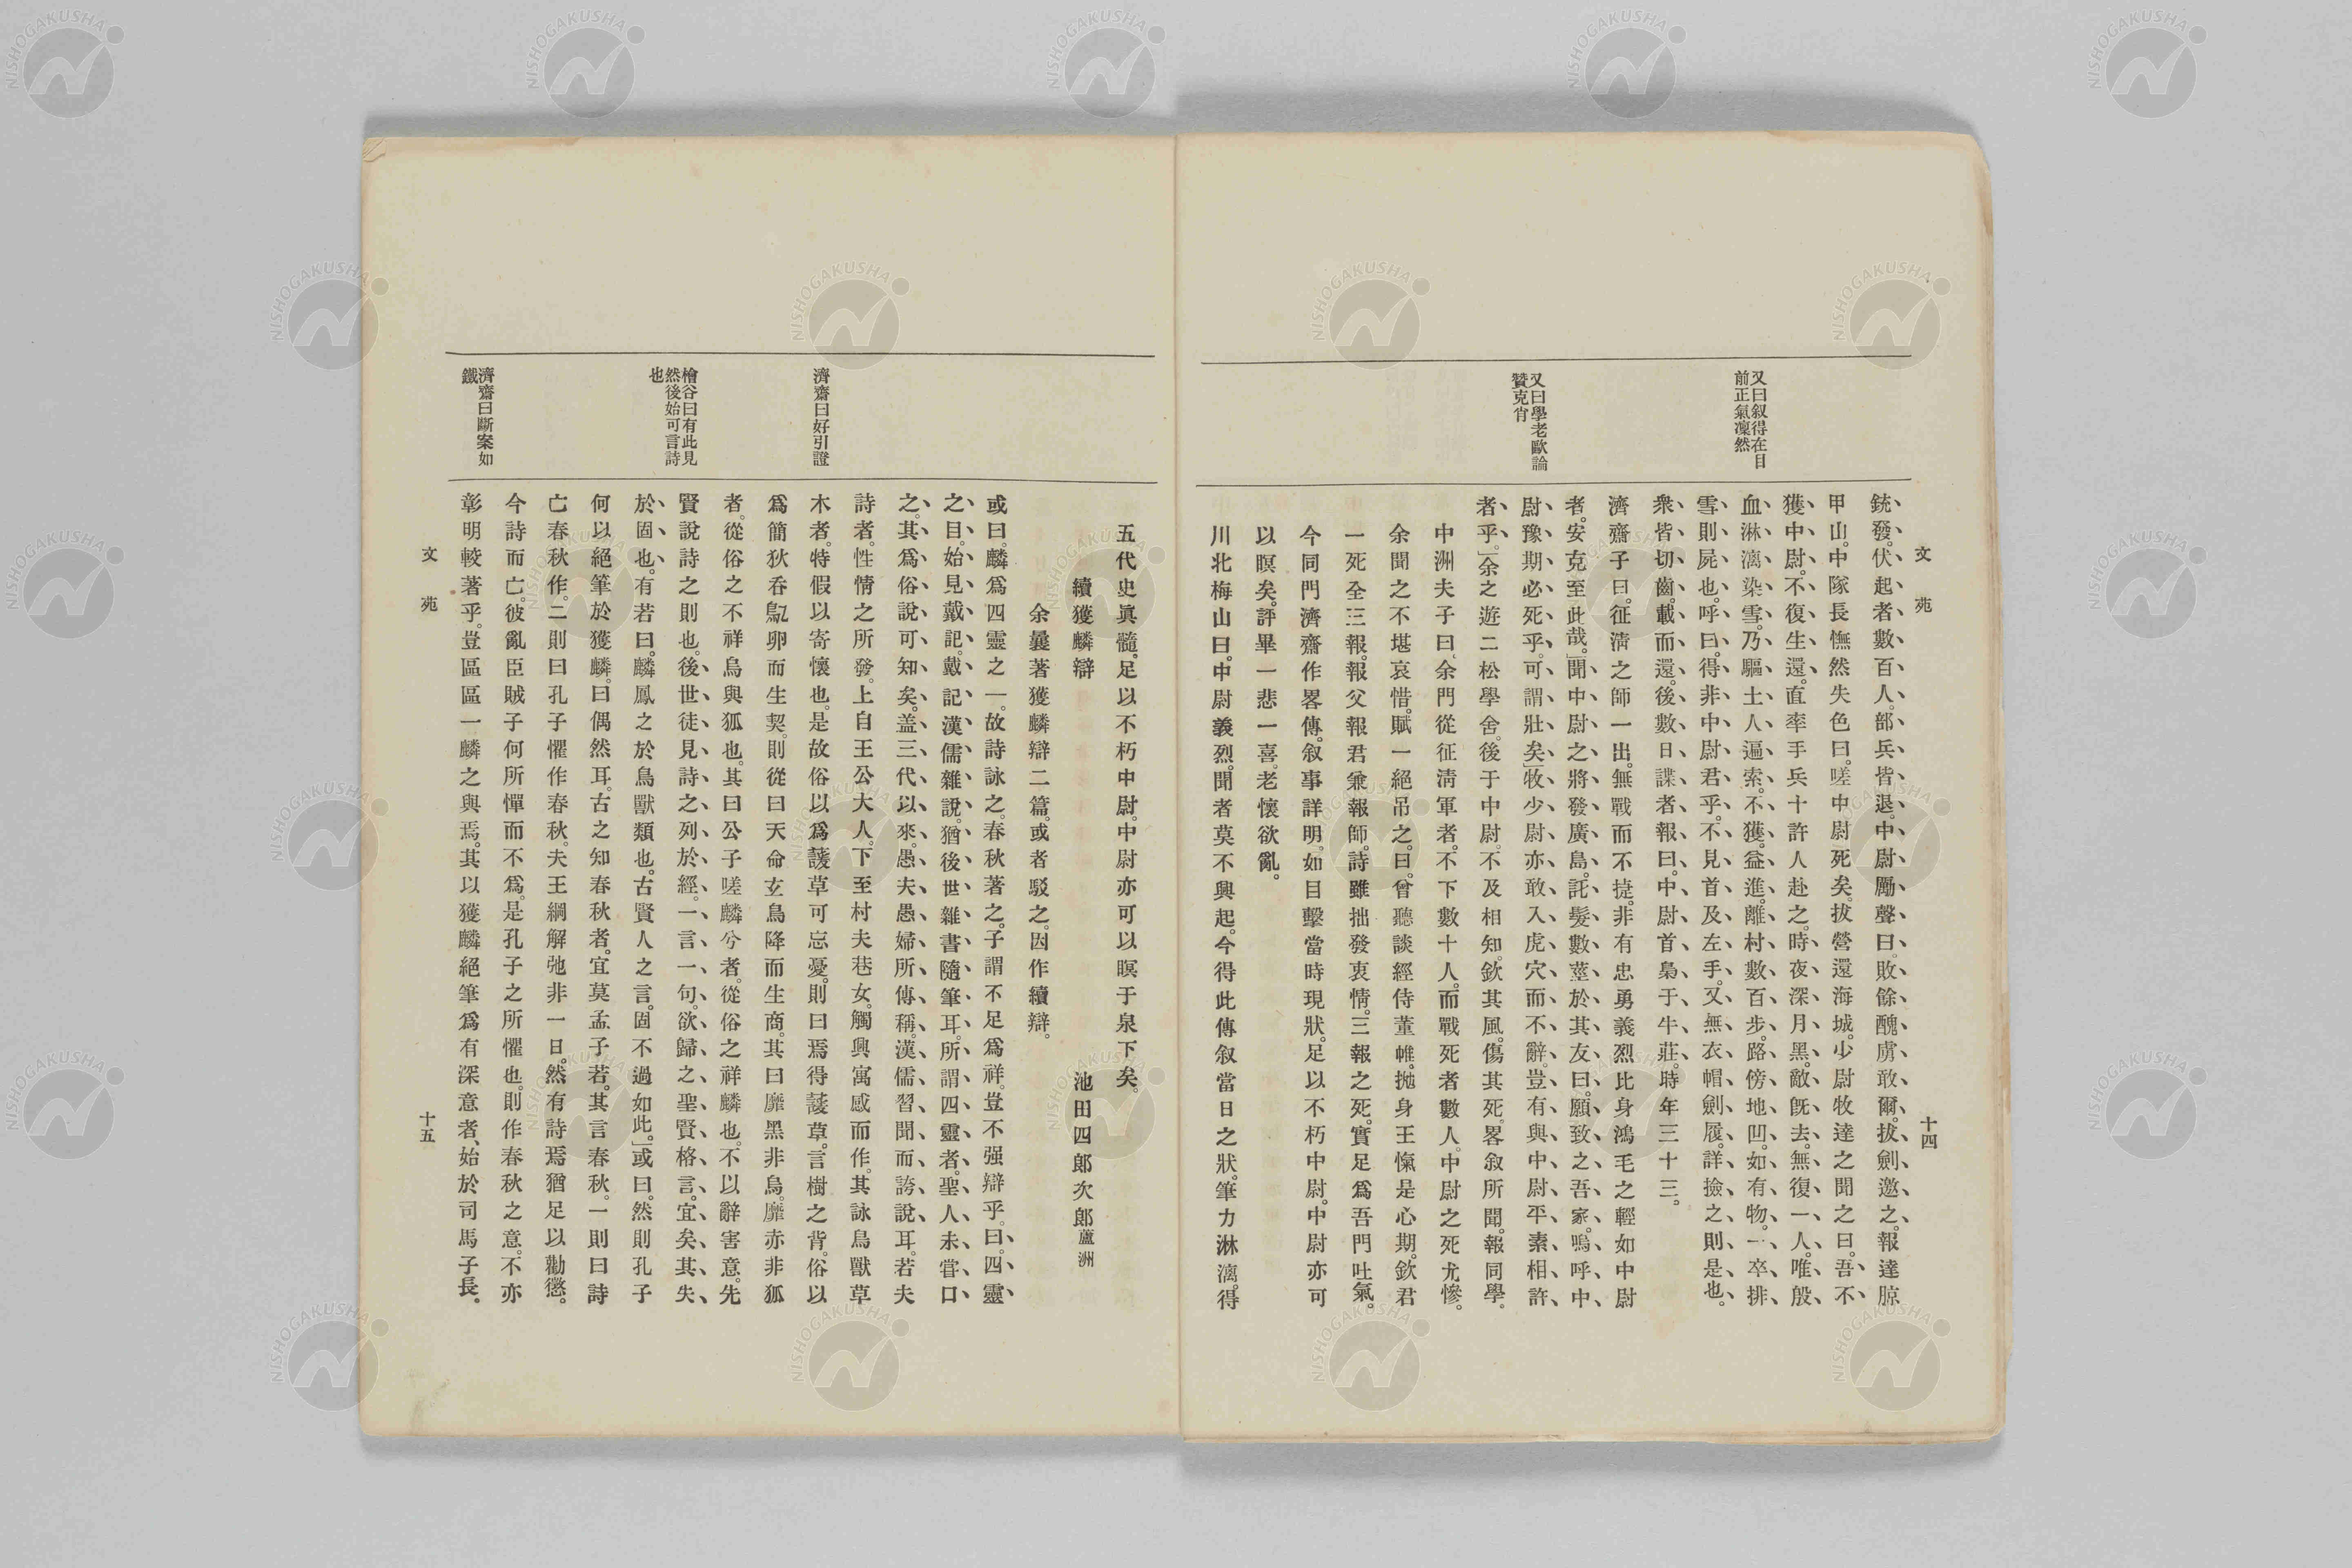 文苑
十四
又曰叙得在目
前正氣凜然
又曰學老歐論
贊克肖
銃發。伏起者數百人。部兵皆退。中尉勵聲曰。敗餘醜虜敢爾。拔劍邀之。報達腙
甲山。中隊長憮然失色曰。嗟中尉死矣。拔營還海城。少尉牧達之聞之曰。吾不
獲中尉。不復生還。直率手兵十許人赴之。時夜深月黑。敵既去。無復一人。唯殷
血淋漓染雪。乃驅土人遍索。不獲。益進。離村數百步。路傍地凹。如有物。一卒排
雪則屍也。呼曰。得非中尉君乎。不見首及左手。又無衣帽劍履。詳撿之則是也。
衆皆切齒。載而還。後數日諜者報曰。中尉首梟于牛莊。時年三十三。
濟齋子曰。征淸之師一出。無戰而不捷。非有忠勇義烈比身鴻毛之輕如中尉
者。安克至此哉。」聞中尉之將發廣島。託髮數莖於其友曰。願致之吾家。嗚呼中
尉豫期必死乎。可謂壯矣」牧少尉亦敢入虎穴而不辭。豈有與中尉平素相許
者乎。」余之遊二松學舍。後于中尉。不及相知。欽其風。傷其死。畧叙所聞。報同學。
中洲夫子曰、余門從征淸軍者。不下數十人。而戰死者數人。中尉之死尤慘。
余聞之不堪哀惜。賦一絕吊之。曰。曾聽談經侍董帷。抛身王愾是心期。欽君
一死全三報。報父報君兼報師。詩雖拙發衷情。三報之死。實足爲吾門吐氣。
今同門濟齋作畧傳。叙事詳明。如目擊當時現狀。足以不朽中尉。中尉亦可
以瞑矣。評畢一悲一喜。老懷欲亂。
川北梅山曰。中尉義烈。聞者莫不興起。今得此傳叙當日之狀。筆力淋漓。得
五代史眞髓。足以不朽中尉。中尉亦可以瞑于泉下矣。
續獲麟辯 池田四郎次郎蘆洲
余曩著獲麟辯二篇。或者駁之。因作續辯。
或曰。麟爲四靈之一。故詩詠之。春秋著之。子謂不足爲祥。豈不强辯乎。曰。四靈
之目。始見戴記。戴記漢儒雜說。猶後世雜書隨筆耳。所謂四靈者。聖人未甞口
之。其爲俗說可知矣。盖三代以來。愚夫愚婦所傳稱。漢儒習聞而誇說耳。若夫
詩者。性情之所發。上自王公大人。下至村夫巷女。觸興寓感而作。其詠鳥獸草
木者。特假以寄懷也。是故俗以爲諼草可忘憂。則曰焉得諼草。言樹之背。俗以
爲簡狄呑鳦卵而生契。則從曰天命玄鳥降而生商。其曰靡黑非烏。靡赤非狐
者。從俗之不祥烏與狐也。其曰公子嗟麟兮者。從俗之祥麟也。不以辭害意。先
賢說詩之則也。後世徒見詩之列於經。一言一句。欲歸之聖賢格言。宜矣其失
於固也。有若曰。麟鳳之於鳥獸類也。古賢人之言。固不過如此。」或曰。然則孔子
何以絕筆於獲麟。曰偶然耳。古之知春秋者。宜莫孟子若。其言春秋。一則曰詩
亡春秋作。二則曰孔子懼作春秋。夫王綱解弛非一日。然有詩焉猶足以勸懲。
今詩而亡。彼亂臣賊子何所憚而不爲。是孔子之所懼也。則作春秋之意。不亦
彰明較著乎。豈區區一麟之與焉。其以獲麟絕筆爲有深意者、始於司馬子長。
濟齋曰好引證
檜谷曰有此見
然後始可言詩
也
濟齋曰斷案如
鐵
文苑
十五